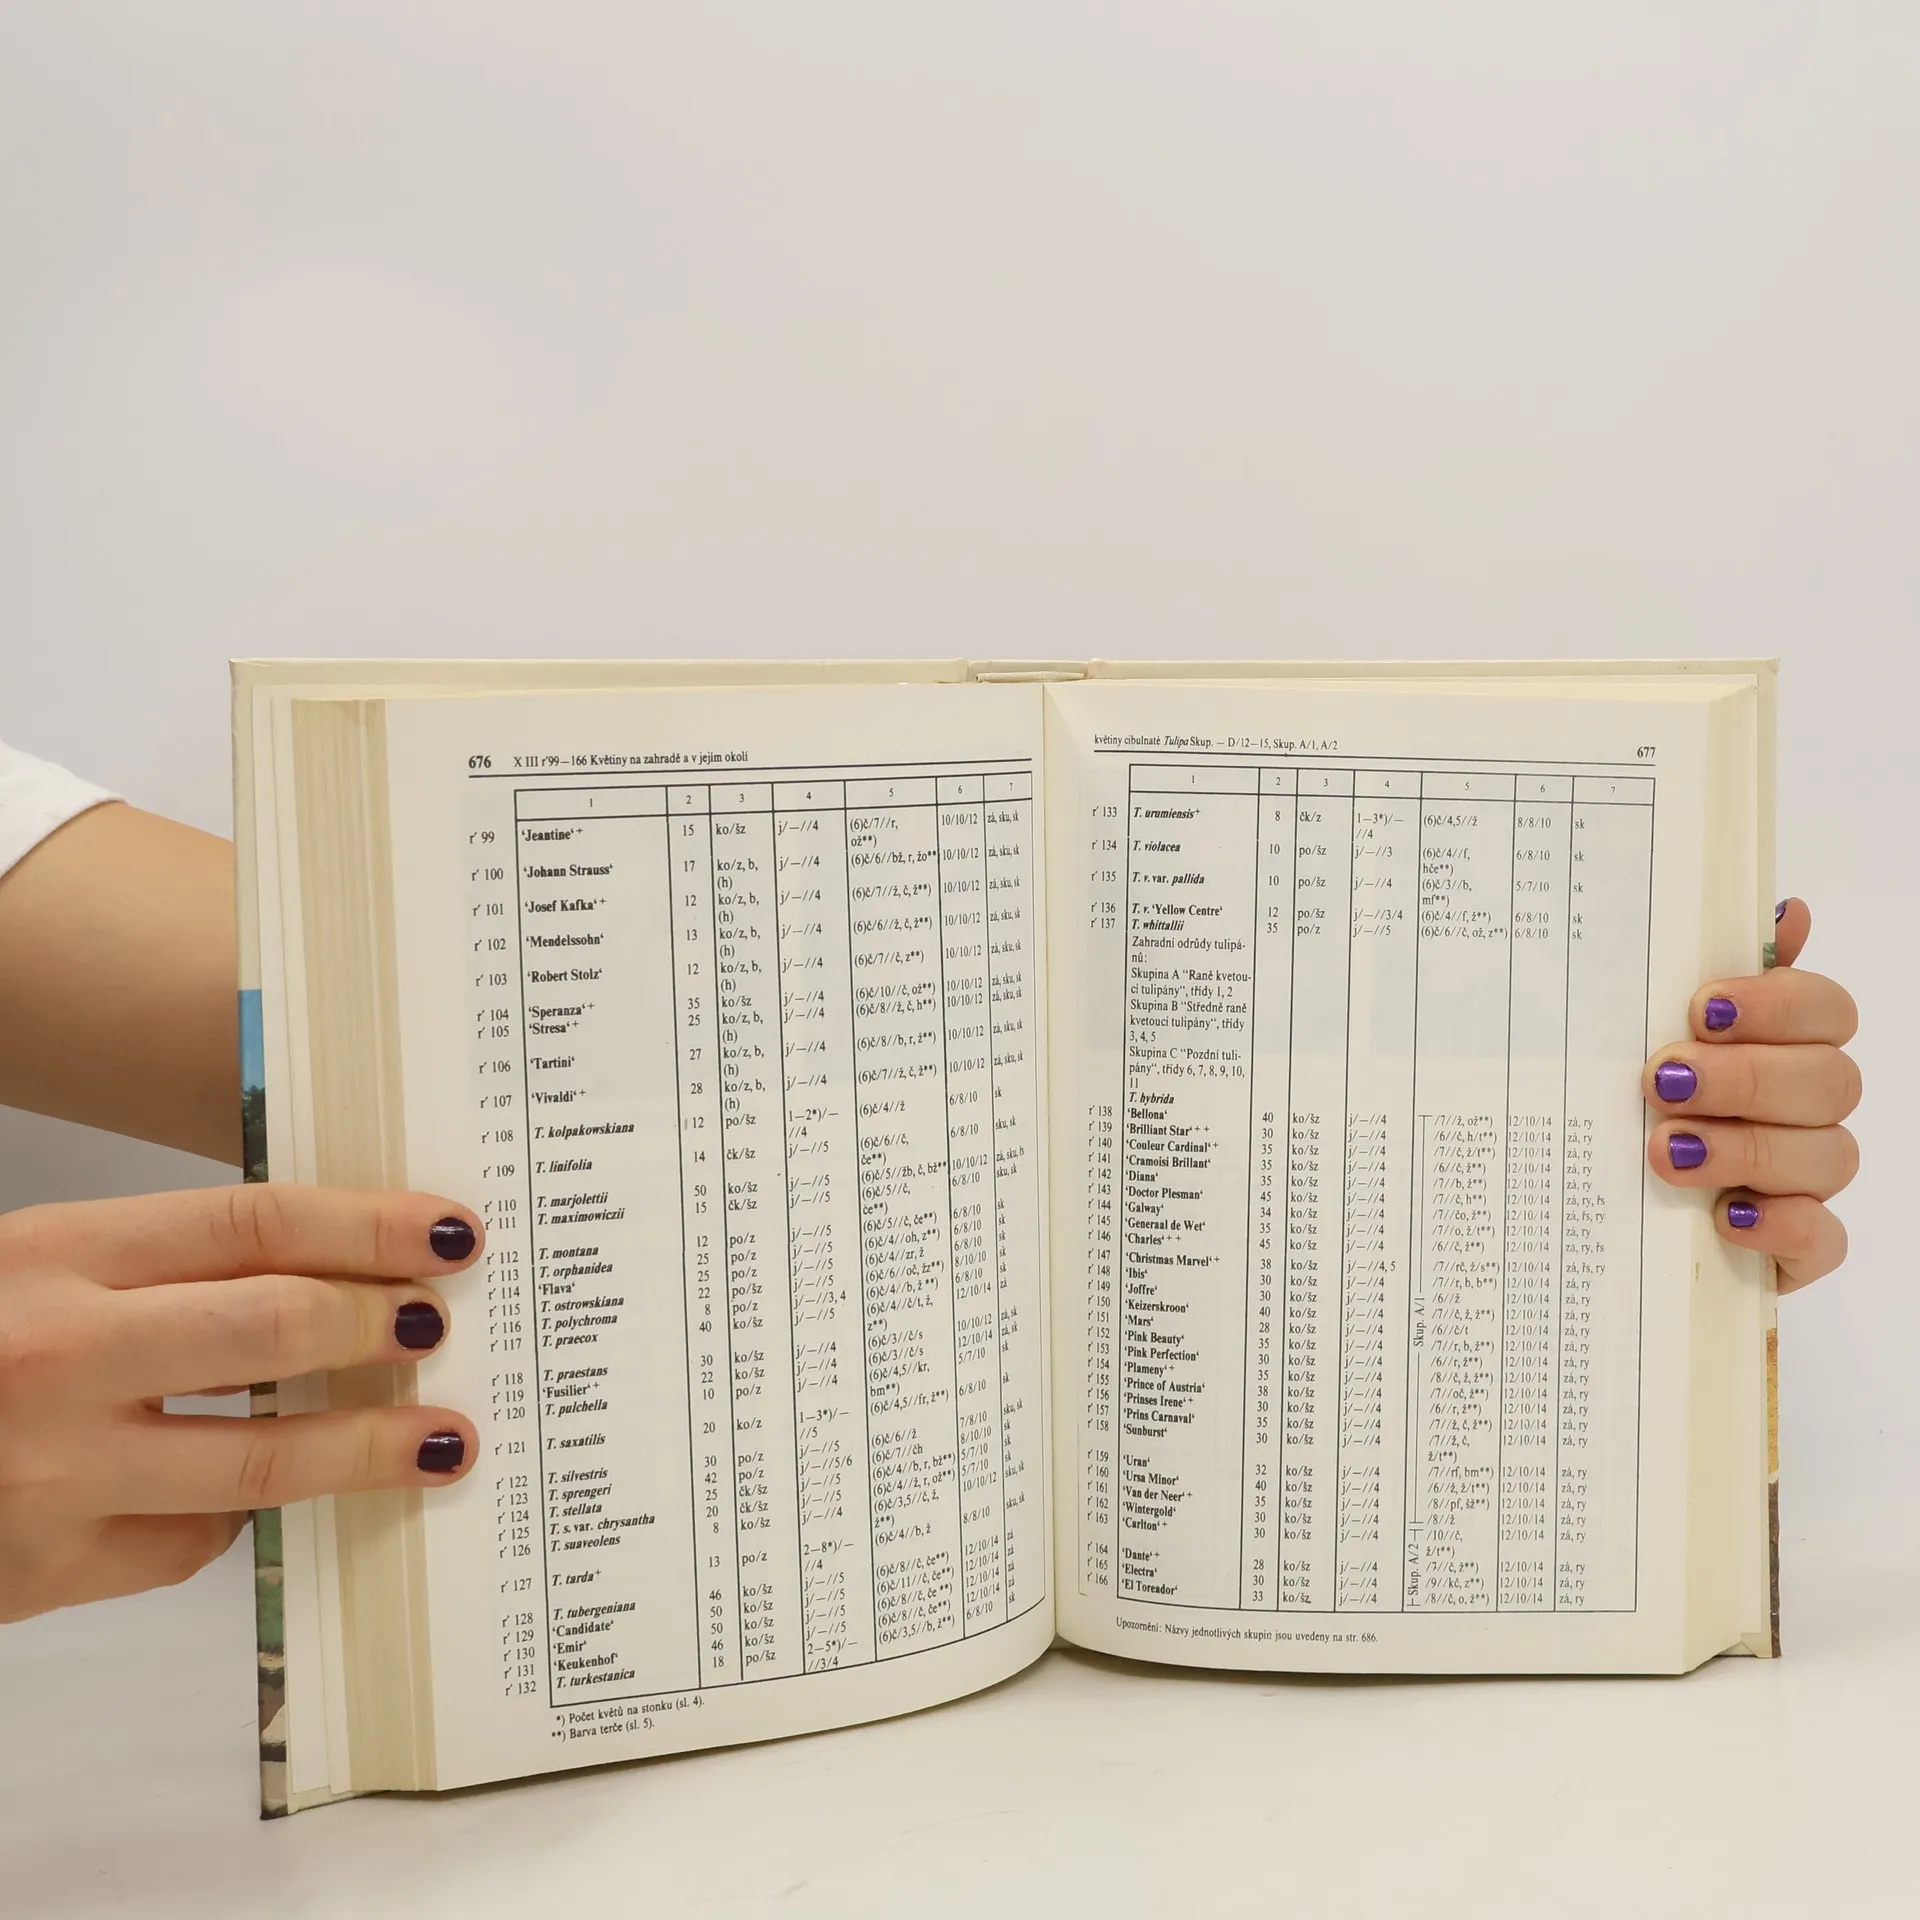 676 X III ŕ 99—166 Květiny na zahradě a v jejím okolí
1 2 3 4 5 6 7
ŕ 99 ‘Jeantine‘+ 15 ko/šz j/—//4 (6)č/7//r, 10/10/12 zá, sku, sk
ož**)
ŕ 100 ‘Johann Strauss‘ 17 ko/z, b, j/—//4 (6)č/6//bž, r, žo** 10/10/12 zá, sku, sk
(h)
ŕ 101 ‘Josef Kafka‘+ 12 ko/z, b, j/—//4 (6)č/7//ž, č, ž**) 10/10/12 zá, sku, sk
(h)
ŕ 102 ‘Mendelssohn‘ 13 ko/z, b, j/—//4 (6)č/6//ž, č, ž**) 10/10/12 zá, sku, sk
(h)
ŕ 103 ‘Robert Stolz‘ 12 ko/z, b, j/—//4 (6)č/7//č, z**) 10/10/12 zá, sku, sk
(h)
ŕ 104 ‘Speranza‘+ 35 ko/šz j/—//4 (6)č/10//č, ož**) 10/10/12 zá, sku, sk
ŕ 105 ‘Stresa‘+ 25 ko/z, b, j/—//4 (6)č/8//ž, č, h**) 10/10/12 zá, sku, sk
(h)
ŕ 106 ‘Tartini‘ 27 ko/z, b, j/—//4 (6)č/8//b, r, ž**) 10/10/12 zá, sku, sk
(h)
ŕ 107 ‘Vivaldi‘+ 28 ko/z, b, j/—//4 (6)č/7//ž, č, ž**) 10/10/12 zá, sku, sk
(h)
ŕ 108 T. kolpakowskiana 12 po/šz 1—2*)/— (6)č/4//ž 6/8/10 sk
//4
ŕ 109 T. linifolia 14 čk/šz j/—//5 (6)č/6//č, 6/8/10 sku, sk
če**)
ŕ 110 T. marjolettii 50 ko/šz j/—//5 (6)č/5//žb, č, bž** 10/10/12 zá, sku, řs
ŕ 111 T. maximowiczii 15 čk/šz j/—//5 (6)č/5//č, 6/8/10 sku, sk
če**)
ŕ 112 T. montana 12 po/z j/—//5 (6)č/5//č, če**) 6/8/10 sk
ŕ 113 T. orphanidea 25 po/z j/—//5 (6)č/4//oh, z**) 6/8/10 sk
ŕ 114 ‘Flava‘ 25 po/z j/—//5 (6)č/4//zr, ž 6/8/10 sk
ŕ 115 T. ostrowskiana 22 po/šz j/—//5 (6)č/6//oč, žz**) 8/10/10 sk
ŕ 116 T. polychroma 8 po/z j/—//3, 4 (6)č/4//b, ž**) 6/8/10 sk
ŕ 117 T. praecox 40 ko/šz j/—//5 (6)č/4//č/t, ž, 12/10/14 zá
z**)
ŕ 118 T. praestans 30 ko/šz j/—//4 (6)č/3//č/s 10/10/12 zá, sk
ŕ 119 ‘Fusilier‘+ 22 ko/šz j/—//4 (6)č/3//č/s 12/10/14 zá, sk
ŕ 120 T. pulchella 10 po/z j/—//4 (6)č/4,5//kr, 5/7/10 sk
bm**)
ŕ 121 T. saxatilis 20 ko/z 1—3*)/— (6)č/4,5//fr, ž**) 6/8/10 sk
//5
ŕ 122 T. silvestris 30 po/z j/—//5 (6)č/6//ž 7/8/10 sku, sk
ŕ 123 T. sprengeri 42 po/z j/—//5/6 (6)č/7//čh 8/10/10 sk
ŕ 124 T. stellata 25 čk/šz j/—//5 (6)č/4//b, r, bž**) 5/7/10 sk
ŕ 125 T. s. var. chrysantha 20 čk/šz j/—//5 (6)č/4//ž, r, ož**) 5/7/10 sk
ŕ 126 T. suaveolens 8 ko/šz j/—//4 (6)č/3,5//č, ž, 10/10/12 sku, sk
ž**)
ŕ 127 T. tarda+ 13 po/z 2—8*)/— (6)č/4//b, ž 8/8/10 sku, sk
//4
ŕ 128 T. tubergeniana 46 ko/šz j/—//5 (6)č/8//č, če**) 12/10/14 zá
ŕ 129 ‘Candidate‘ 50 ko/šz j/—//5 (6)č/11//č, če**) 12/10/14 zá
ŕ 130 ‘Emir‘ 50 ko/šz j/—//5 (6)č/8//č, če **) 12/10/14 zá
ŕ 131 ‘Keukenhof‘ 46 ko/šz j/—//5 (6)č/8//č, če**) 12/10/14 zá
ŕ 132 T. turkestanica 18 po/šz 2—5*)/— (6)č/3,5//b, ž**) 6/8/10 sk
//3/4
*) Počet květů na stonku (sl. 4).
**) Barva terče (sl. 5).
květiny cibulnaté Tulipa Skup. — D/12—15, Skup. A/1, A/2 677
1 2 3 4 5 6 7
ŕ 133 T. urumiensis+ 8 čk/z 1—3*)/— (6)č/4,5//ž 8/8/10 sk
//4
ŕ 134 T. violacea 10 po/šz j/—//3 (6)č/4//f, 6/8/10 sk
hče**)
ŕ 135 T. v. var. pallida 10 po/šz j/—//4 (6)č/3//b, 5/7/10 sk
mf**)
ŕ 136 T. v. ‘Yellow Centre‘ 12 po/šz j/—//3/4 (6)č/4//f, ž**) 6/8/10 sk
ŕ 137 T. whittallii 35 po/z j/—//5 (6)č/6//č, ož, z**) 6/8/10 sk
Zahradní odrůdy tulipá-
nů:
Skupina A “Raně kvetou-
cí tulipány“, třídy 1, 2
Skupina B “Středně raně
kvetoucí tulipány“, třídy
3, 4, 5
Skupina C “Pozdní tuli-
pány“, třídy 6, 7, 8, 9, 10,
11
T. hybrida
Skup. A/1
ŕ 138 ‘Bellona‘ 40 ko/šz j/—//4 /7//ž, ož**) 12/10/14 zá, ry
ŕ 139 ‘Brilliant Star‘++ 30 ko/šz j/—//4 /6//č, h/t**) 12/10/14 zá, ry
ŕ 140 ‘Couleur Cardinal‘+ 35 ko/šz j/—//4 /7//č, ž/t**) 12/10/14 zá, ry
ŕ 141 ‘Cramoisi Brillant‘ 35 ko/šz j/—//4 /6//č, ž**) 12/10/14 zá, ry
ŕ 142 ‘Diana‘ 35 ko/šz j/—//4 /7//b, ž**) 12/10/14 zá, ry
ŕ 143 ‘Doctor Plesman‘ 45 ko/šz j/—//4 /7//č, h**) 12/10/14 zá, ry, řs
ŕ 144 ‘Galway‘ 34 ko/šz j/—//4 /7//čo, ž**) 12/10/14 zá, řs, ry
ŕ 145 ‘Generaal de Wet‘ 35 ko/šz j/—//4 /7//o, ž/t**) 12/10/14 zá, ry
ŕ 146 ‘Charles‘++ 45 ko/šz j/—//4 /6//č, ž**) 12/10/14 za, ry, řs
ŕ 147 ‘Christmas Marvel‘+ 38 ko/šz j/—//4, 5 /7//rč, ž/s**) 12/10/14 zá, řs, ry
ŕ 148 ‘Ibis‘ 30 ko/šz j/—//4 /7//r, b, b**) 12/10/14 zá, ry
ŕ 149 ‘Joffre‘ 30 ko/šz j/—//4 /6//ž 12/10/14 zá, ry
ŕ 150 ‘Keizerskroon‘ 40 ko/šz j/—//4 /7//č, ž, ž**) 12/10/14 zá, ry
ŕ 151 ‘Mars‘ 28 ko/šz j/—//4 /6//č/t 12/10/14 zá, ry
ŕ 152 ‘Pink Beauty‘ 35 ko/šz j/—//4 /7//r, b, ž**) 12/10/14 zá, ry
ŕ 153 ‘Pink Perfection‘ 30 ko/šz j/—//4 /6//r, ž**) 12/10/14 zá, ry
ŕ 154 ‘Plameny‘+ 35 ko/šz j/—//4 /8//č, ž, ž**) 12/10/14 zá, ry
ŕ 155 ‘Prince of Austria‘ 38 ko/šz j/—//4 /7//oč, ž**) 12/10/14 zá, ry
ŕ 156 ‘Prinses Irene‘+ 30 ko/šz j/—//4 /6//r, ž**) 12/10/14 zá, ry
ŕ 157 ‘Prins Carnaval‘ 35 ko/šz j/—//4 /7//ž, č, ž**) 12/10/14 zá, ry
ŕ 158 ‘Sunburst‘ 30 ko/šz j/—//4 /7//ž, č, 12/10/14 zá, ry
ž/t**)
ŕ 159 ‘Uran‘ 32 ko/šz j/—//4 /7//rf, bm**) 12/10/14 zá, ry
ŕ 160 ‘Ursa Minor‘ 40 ko/šz j/—//4 /6//ž, ž/t**) 12/10/14 zá, ry
ŕ 161 ‘Van der Neer‘+ 35 ko/šz j/—//4 /8//pf, šž**) 12/10/14 zá, ry
ŕ 162 ‘Wintergold‘ 30 ko/šz j/—//4 /8//ž 12/10/14 zá, ry
Skup. A/2
ŕ 163 ‘Carlton‘+ 30 ko/šz j/—//4 /10//č, 12/10/14 zá, ry
ž/t**)
ŕ 164 ‘Dante‘+ 28 ko/šz j/—//4 /7//č, ž**) 12/10/14 zá, ry
ŕ 165 ‘Electra‘ 30 ko/šz j/—//4 /9//kč, z**) 12/10/14 zá, ry
ŕ 166 ‘El Toreador‘ 33 ko/šz j/—//4 /8//č, o, ž**) 12/10/14 zá, ry
Upozornění: Názvy jednotlivých skupin jsou uvedeny na str. 686.